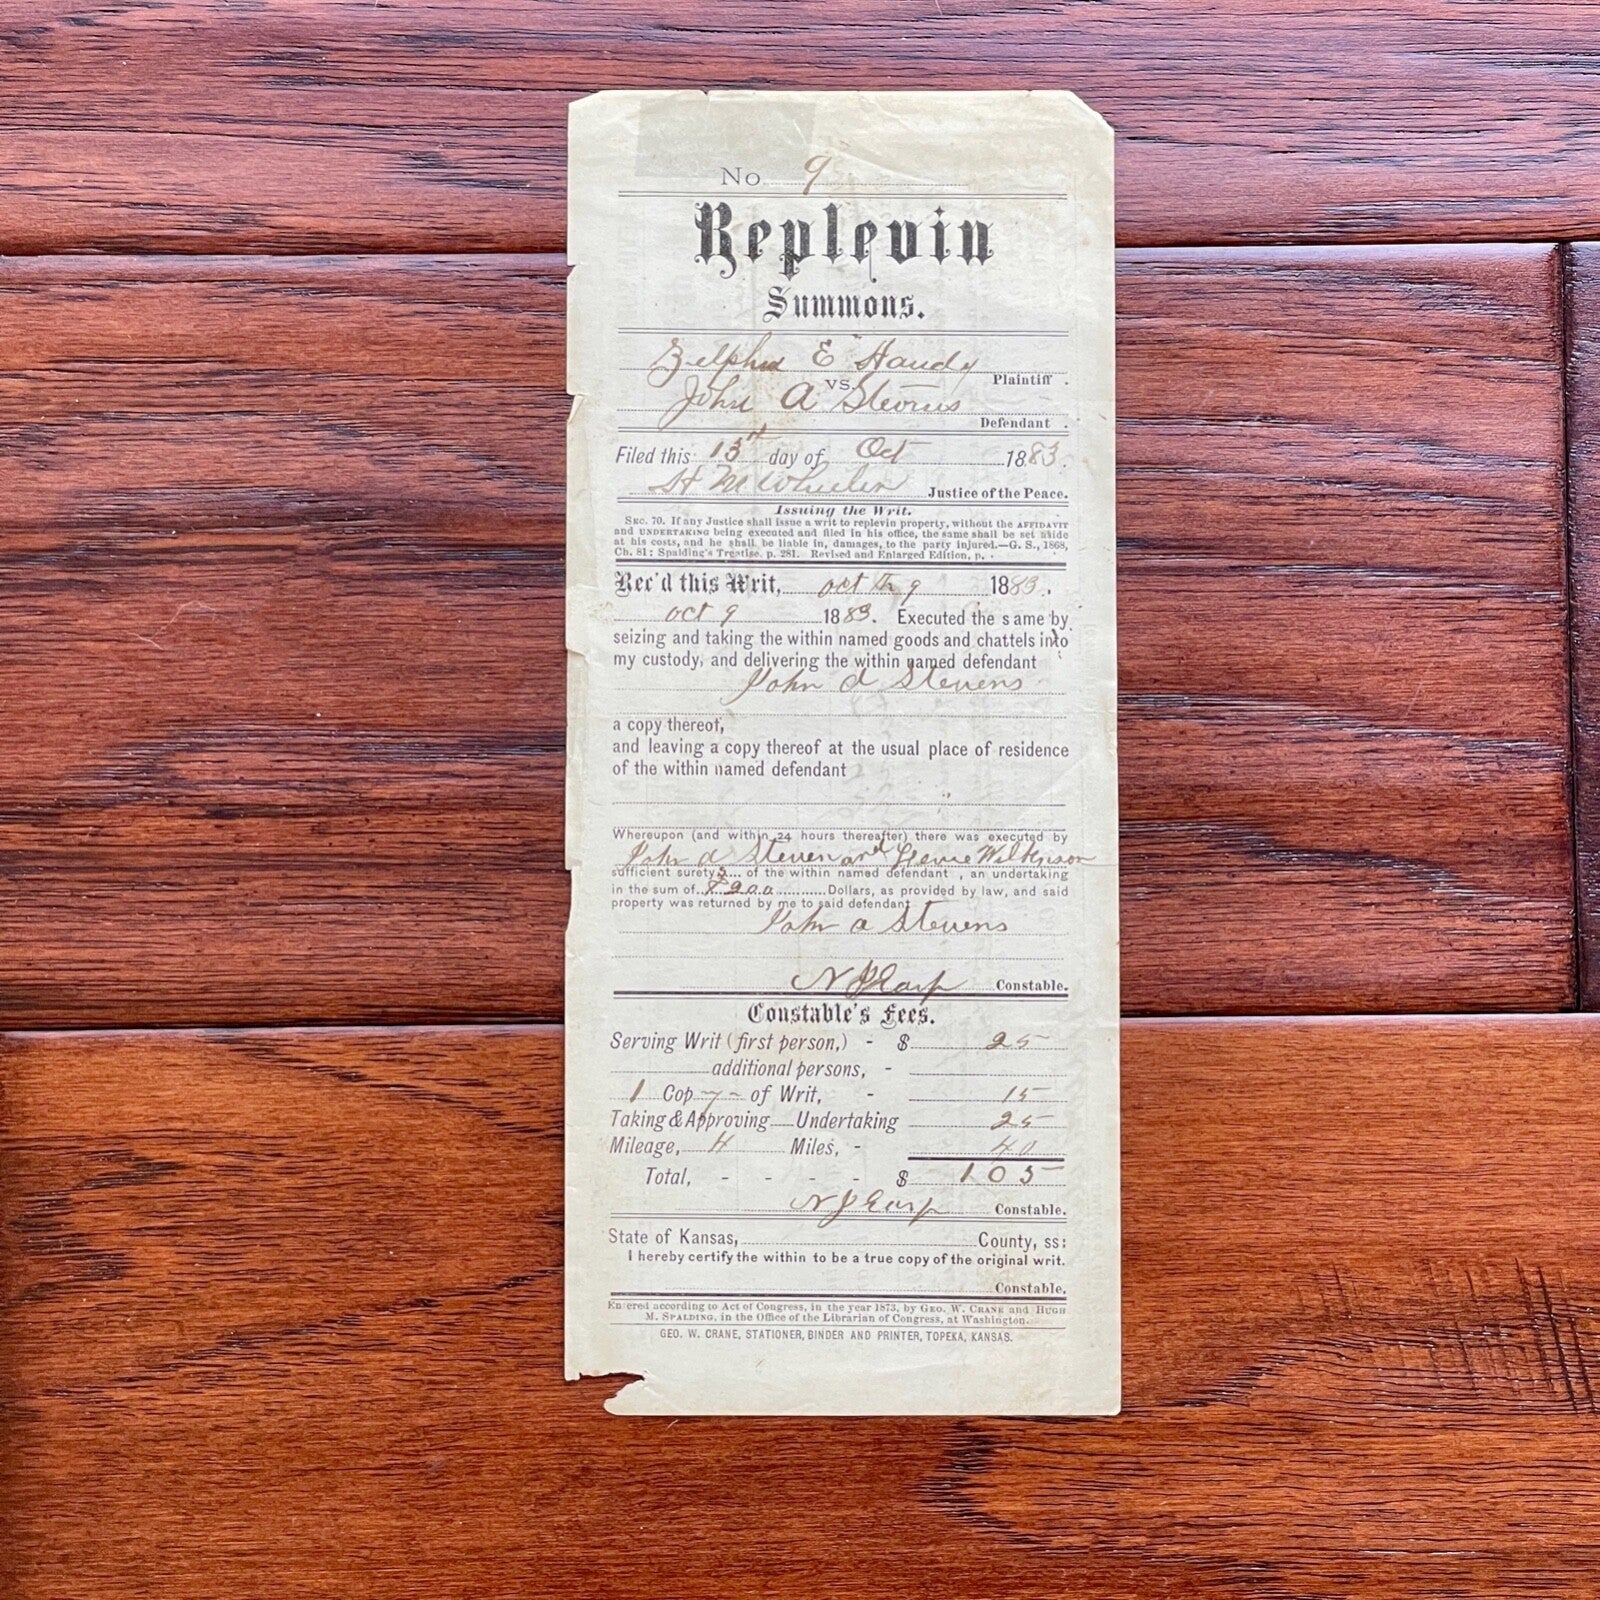 No 9
Replevin
Summons.
Zelphia E Handy
Plaintiff .
vs.
John A Stevens
Defendant .
Filed this 13th day of Oct 1883.
H M Wheeler Justice of the Peace.
Issuing the Writ.
Sec. 70. If any Justice shall issue a writ to replevin property, without the AFFIDAVIT
and UNDERTAKING being executed and filed in his office, the same shall be set aside
at his costs, and he shall be liable in, damages, to the party injured.—G. S., 1868,
Ch. 81; Spalding's Treatise. p. 281. Revised and Enlarged Edition, p. .
Rec'd this Writ, oct th 9 1883.
oct 9 1883. Executed the same by
seizing and taking the within named goods and chattels into
my custody, and delivering the within named defendant
John A Stevens
a copy thereof,
and leaving a copy thereof at the usual place of residence
of the within named defendant
Whereupon (and within 24 hours thereafter) there was executed by
John A Steven and Wilkenson
sufficient surety s of the within named defendant , an undertaking
in the sum of Dollars, as provided by law, and said
property was returned by me to said defendant
John a Stevens
N J Earp Constable.
Constable's Fees.
Serving Writ (first person,) - $ 25
additional persons, -
1 Cop y - of Writ, - 15
Taking & Approving Undertaking 25
Mileage, 4 Miles, - 40
Total, - - - - $ 1 05
N J Earp Constable.
State of Kansas, County, ss:
I hereby certify the within to be a true copy of the original writ.
Constable.
Entered according to Act of Congress, in the year 1873, by Geo. W. Crane and Hugh
M. Spalding, in the Office of the Librarian of Congress, at Washington.
GEO. W. CRANE, STATIONER, BINDER AND PRINTER, TOPEKA, KANSAS.